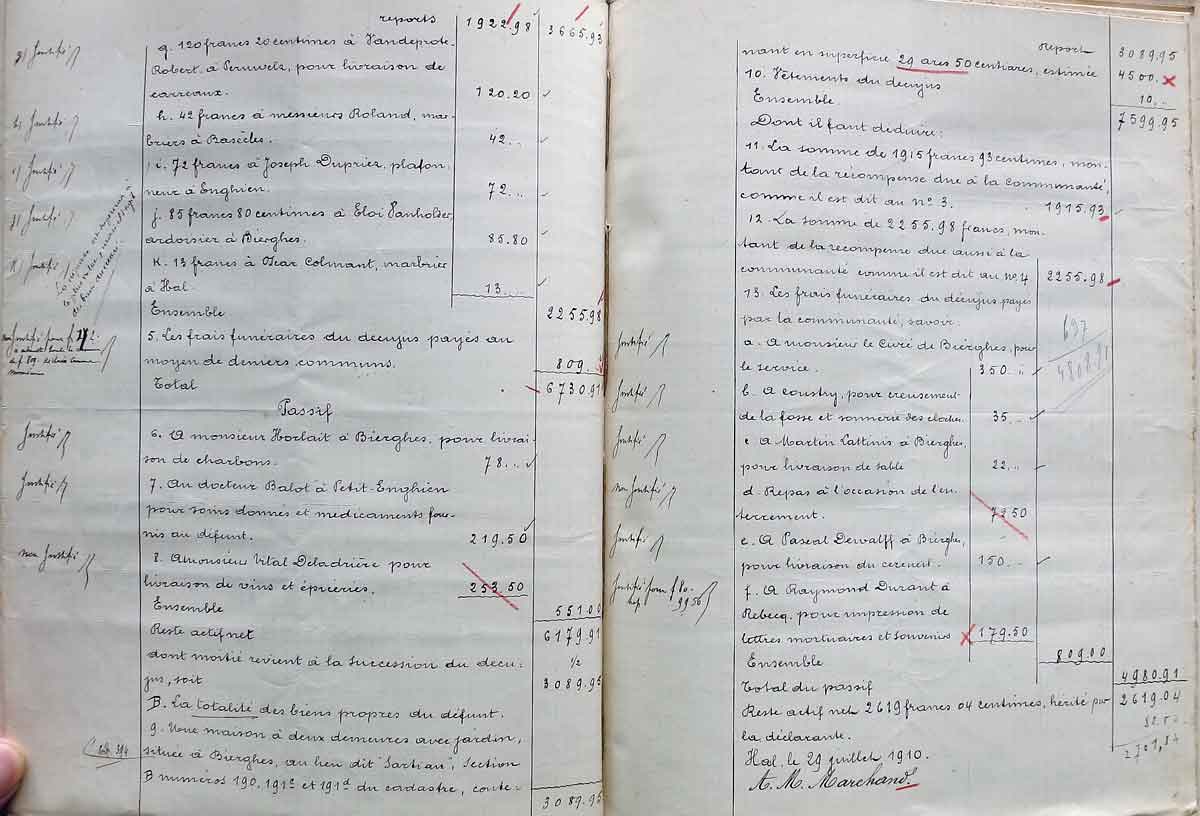 reports 1922.98 3665.93
g) Justifié
g. 120 francs 20 centimes à Vandeprote-
Robert à Peruwelz, pour livraison de
carreaux. 120.20
h) Justifié
h. 42 francs à messieurs Roland, mar-
briers à Basècles. 42...
i) Justifié
i. 72 francs à Joseph Dupriez, plafon-
neur à Enghien. 72...
j) Justifié
j. 85 francs 80 centimes à Eloi Vanholder,
ardoisier à Bierghes. 85.80
K) Justifié
K. 13 francs à Oscar Colmant, marbrier
à Hal 13....
Ensemble 2255.98
5. Les frais funéraires du decujus payés au
moyen de deniers communs. 809.
Total 6730.91
Passif
Justifié
6. A monsieur Horlait à Bierghes, pour livrai-
son de charbons. 78...
Justifié
7. Au docteur Balot à Petit-Enghien
pour soins donnés et médicaments four-
nis au défunt. 219.50
non Justifié
8. A monsieur Vital Deladrière pour
livraison de vins et épiceries. 253.50
Ensemble 551.00
Reste actif net 6179.91
dont moitié revient à la succession du decu- ½
jus, soit 3089.95
B. La totalité des biens propres du défunt.
9. Une maison à deux demeures avec jardin,
située à Bierghes, au lieu dit "Sartiau", Section
B numéros 190, 191c et 191d du cadastre, conte-
3089.95
Report 3089.95
nant en superficie 29 ares 50 centiares, estimée 4500.
10. Vêtements du decujus 10...
Ensemble 7599.95
Dont il faut deduire:
11. La somme de 1915 francs 93 centimes, mon-
tant de la recompense due à la communauté,
comme il est dit au no 3. 1915.93
12. La somme de 2255.98 francs, mon-
tant de la recompense due aussi à la
communauté comme il est dit au no. 4 2255.98
13. Les frais funéraires du decujus payés
par la communauté, savoir:
697
4808.91
Justifié
a. A monsieur le Curé de Bierghes, pour
le service. 350...
Justifié
b. A Coustry, pour creusement
de la fosse et sonnerie des cloches 35...
Justifié
c. A Martin Lattinis à Bierghes,
pour livraison de sable 22...
non Justifié
d. Repas à l'occasion de l'en-
terrement. 72.50
Justifié
e. A Pascal Dewalff à Bierghes,
pour livraison du cercueil. 150...
f. A Raymond Durant à
Rebecq, pour impression de
lettres mortuaires et souvenirs 179.50
Ensemble 809.00
Total du passif 4980.91
Reste actif net 2619 francs 04 centimes, hérité par 2619.04
la déclarante.
Hal, le 29 juillet 1910.
A. M. Marchand.